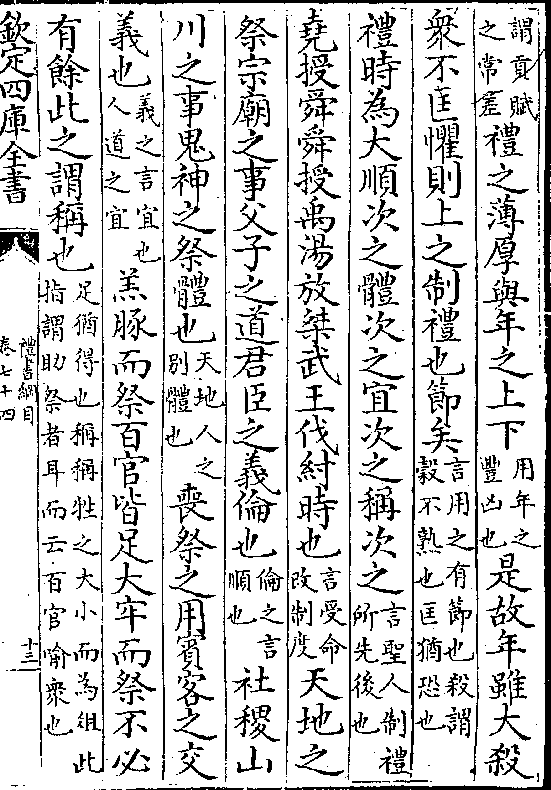 謂貢賦之常差禮之薄厚與年之上下用年之豐凶也是故年雖大殺
衆不匡懼則上之制禮也節矣言用之有節也殺謂穀不熟也匡猶恐也
禮時為大順次之體次之宜次之稱次之言聖人制禮所先後也
堯授舜舜授禹湯放桀武王伐紂時也言受命改制度天地之
祭宗廟之事父子之道君臣之義倫也倫之言順也社稷山
川之事鬼神之祭體也天地人之別體也喪祭之用賓客之交
義也義之言宜也人道之宜羔豚而祭百官皆足大牢而祭不必
有餘此之謂稱也足猶得也稱稱牲之大小而為俎此指謂助祭者耳而云百官喻衆也
欽定四庫全書
禮書綱目
卷七十四
十三